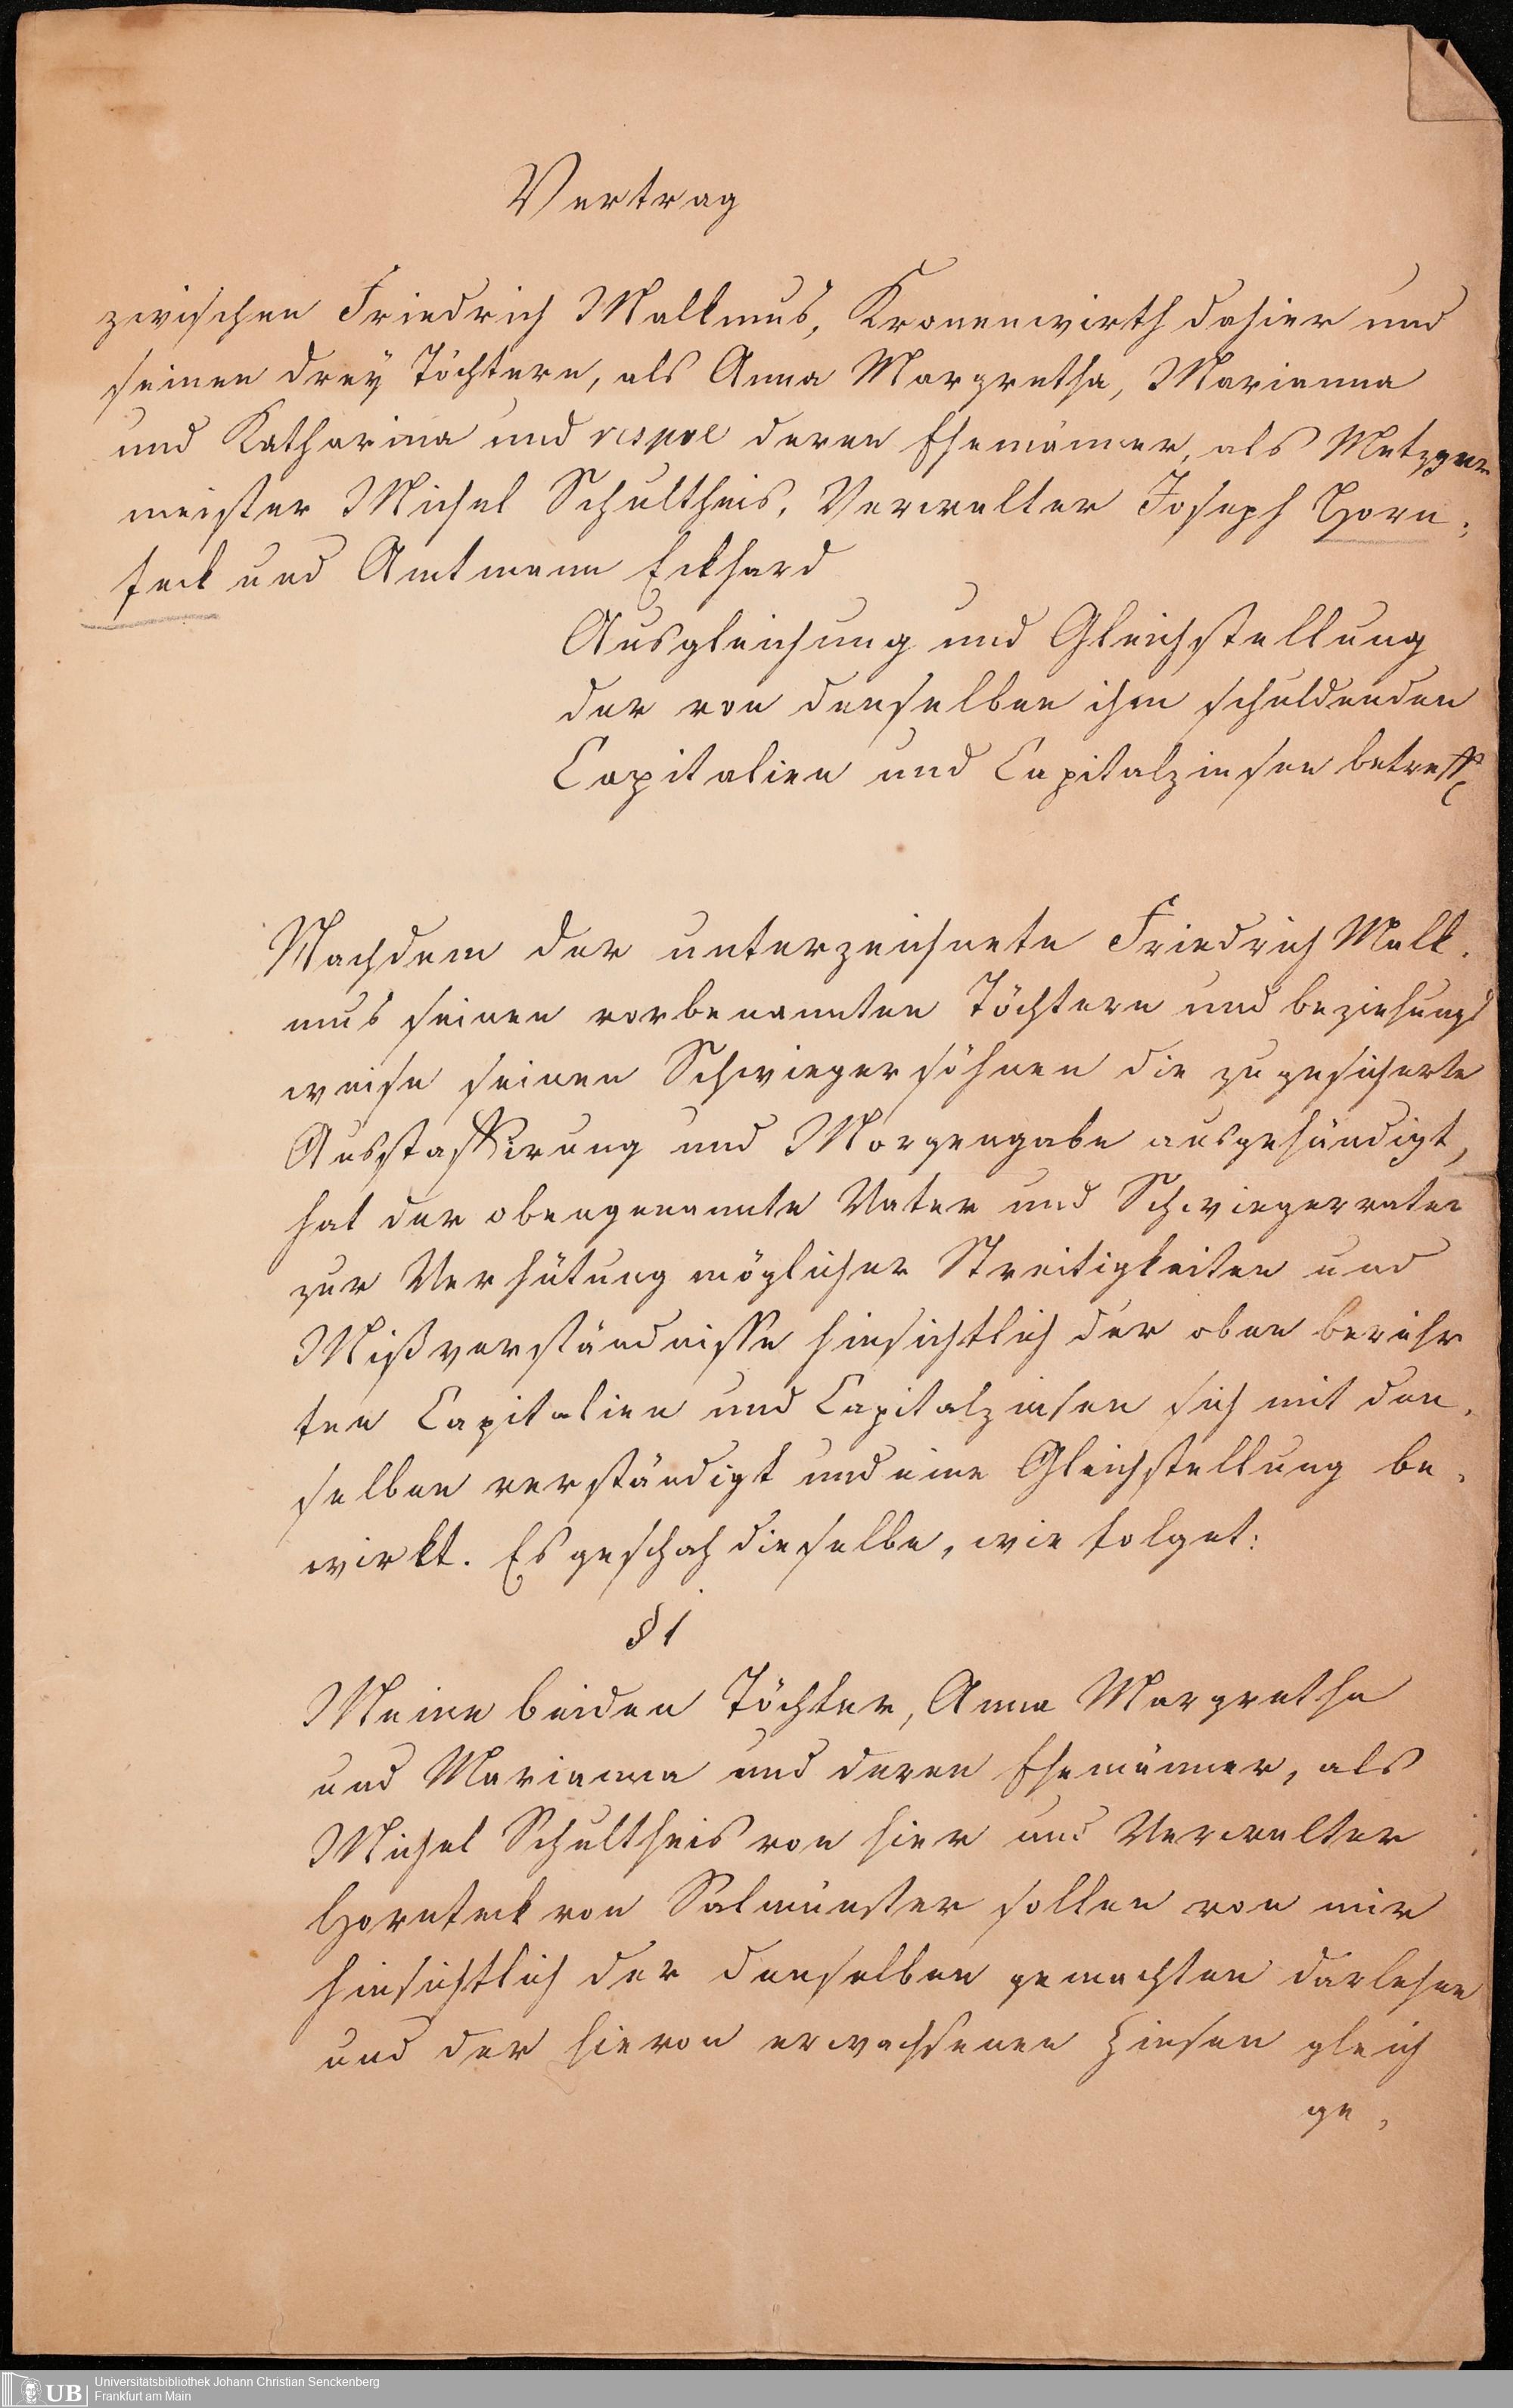 Vertrag
zwischen Friedrich Mallmus, Kronenwirth dahier und
seinen drey Töchtern, als Anna Margretha, Marianna
und Katharina und respve deren Ehemänner, als Metzger
meister Michel Schultheis, Verwalter Joseph Horn,
feck und Amtmann Eckhard
Ausgleichung und Gleichstellung
der von denselben ihm schuldenden
Capitalien und Capitalzinsen betreff
Nachdem der unterzeichnete Friedrich Mall,
mus seinen vorbenannten Töchtern und beziehungs
weise seinen Schwiegersöhnen die zugesicherte
Ausstaffirung und Morgengabe ausgehändigt,
hat der obengenannte Vater und Schwiegervater
zur Verhütung möglicher Streitigkeiten und
Mißverständnisse hinsichtlich der oben berühr
ten Capitalien und Capitalzinsen sich mit den,
selben verständigt und eine Gleichstellung be,
wirkt. Es geschah dieselbe, wie folget:
§ 1
Meine beiden Töchter, Anna Margretha
und Marianna und deren Ehemänner, als
Michel Schultheis von hier und Verwalter
Hornfeck von Salmünster sollen von mir
hinsichtlich der denselben gemachten Darlehen
und der hievon erwachsenen Zinsen gleich
ge,
UB
Universitätsbibliothek Johann Christian Senckenberg
Frankfurt am Main